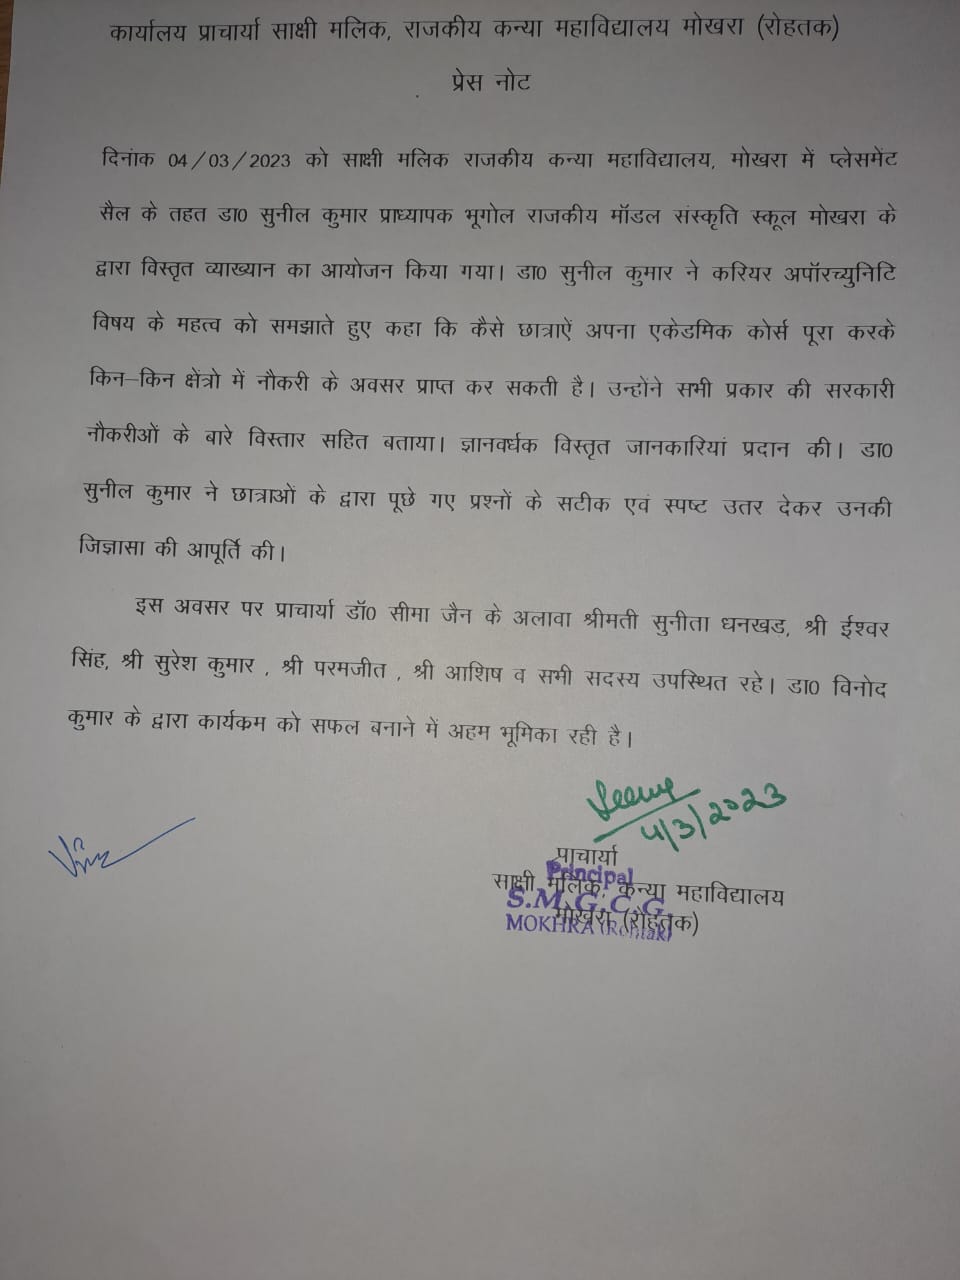 कार्यालय प्राचार्या साक्षी मलिक, राजकीय कन्या महाविद्यालय मोखरा (रोहतक)
प्रेस नोट
दिनांक 04/03/2023 को साक्षी मलिक राजकीय कन्या महाविद्यालय, मोखरा में प्लेसमेंट
सैल के तहत डा0 सुनील कुमार प्राध्यापक भूगोल राजकीय मॉडल संस्कृति स्कूल मोखरा के
द्वारा विस्तृत व्याख्यान का आयोजन किया गया। डा0 सुनील कुमार ने करियर अपॉरच्युनिटि
विषय के महत्व को समझाते हुए कहा कि कैसे छात्राऐं अपना एकेडमिक कोर्स पूरा करके
किन–किन क्षेंत्रो में नौकरी के अवसर प्राप्त कर सकती है। उन्होंने सभी प्रकार की सरकारी
नौकरीओं के बारे विस्तार सहित बताया। ज्ञानवर्धक विस्तृत जानकारियां प्रदान की। डा0
सुनील कुमार ने छात्राओं के द्वारा पूछे गए प्रश्नों के सटीक एवं स्पष्ट उतर देकर उनकी
जिज्ञासा की आपूर्ति की।
इस अवसर पर प्राचार्या डॉ0 सीमा जैन के अलावा श्रीमती सुनीता धनखड, श्री ईश्वर
सिंह, श्री सुरेश कुमार , श्री परमजीत , श्री आशिष व सभी सदस्य उपस्थित रहे। डा0 विनोद
कुमार के द्वारा कार्यक्रम को सफल बनाने में अहम भूमिका रही है।
4/3/2023
प्राचार्या
Principal
साक्षी मलिक, कन्या महाविद्यालय
S.M.G.C.G.
मोखरा (रोहतक)
MOKHRA (Rohtak)